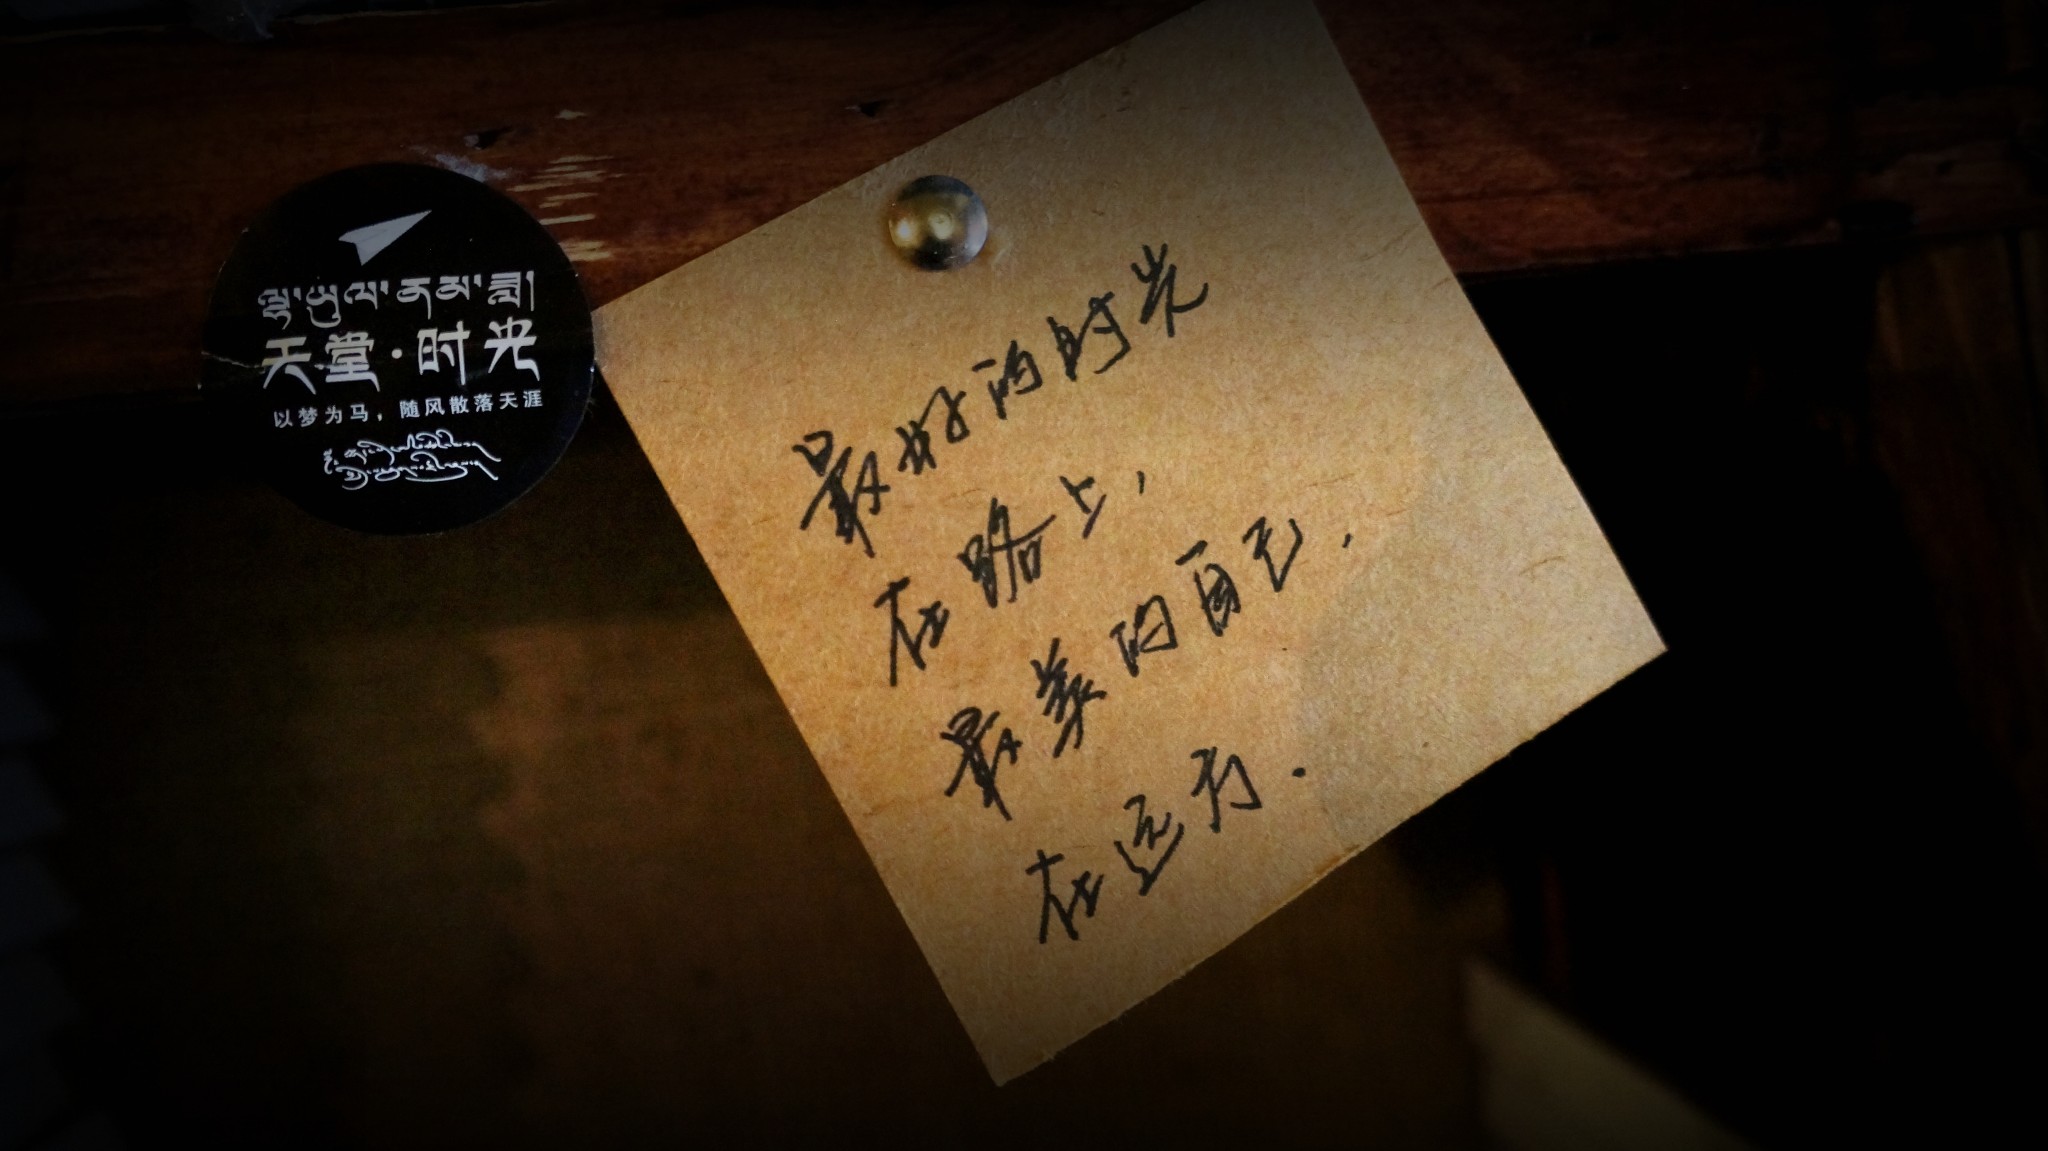 ལྷ་ཡུལ་ནམ་ཟླ།
天堂·时光
以梦为马，随风散落天涯
最好的时光
在路上，
最美的自己.
在远方.